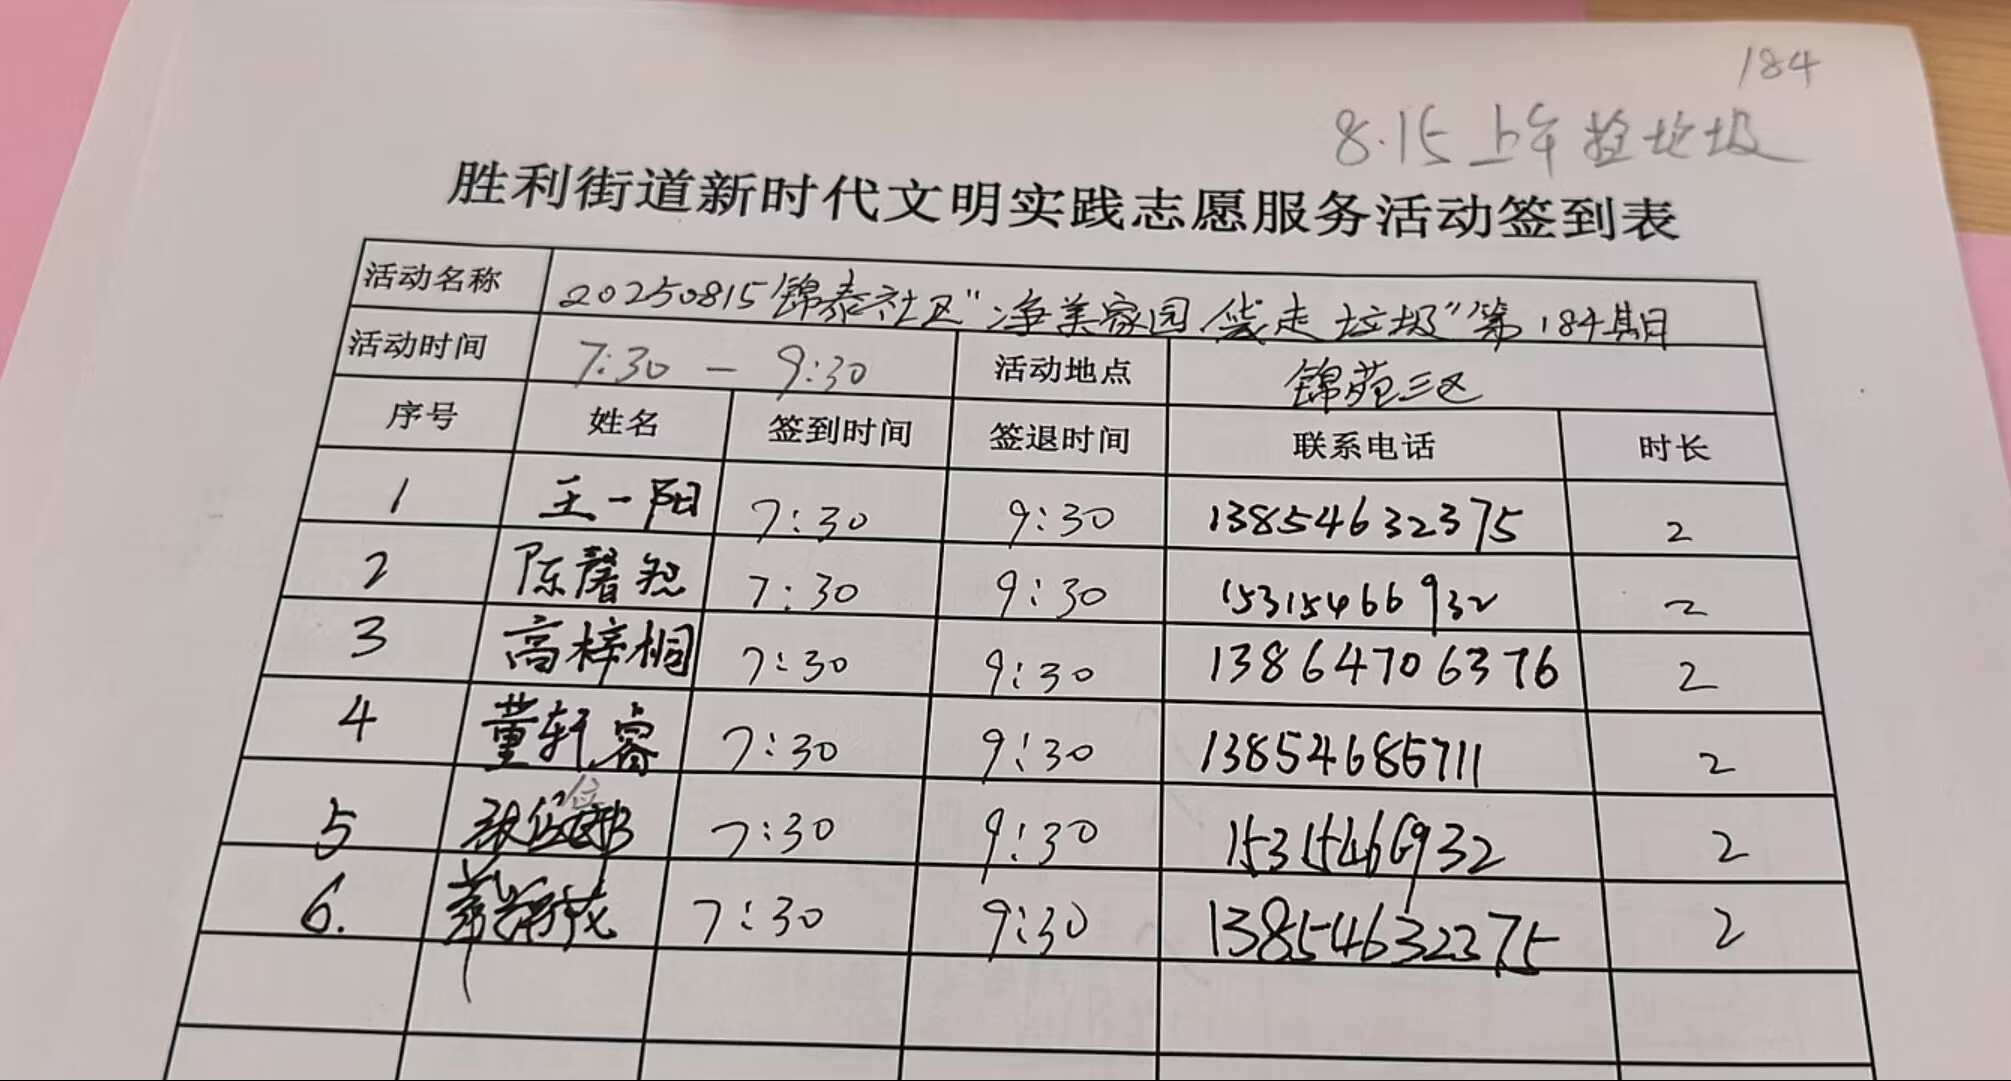 184
8.15上午捡垃圾
胜利街道新时代文明实践志愿服务活动签到表
活动名称 20250815锦泰社区"净美家园 袋走垃圾"第184期
活动时间 7:30 — 9:30 活动地点 锦苑三区
序号 姓名 签到时间 签退时间 联系电话 时长
1 王一阳 7:30 9:30 13854632375 2
2 陈馨 7:30 9:30 15315466932 2
3 高梓桐 7:30 9:30 13864706376 2
4 董轩睿 7:30 9:30 13854685711 2
5 7:30 9:30 15315466932 2
6. 7:30 9:30 13854632375 2